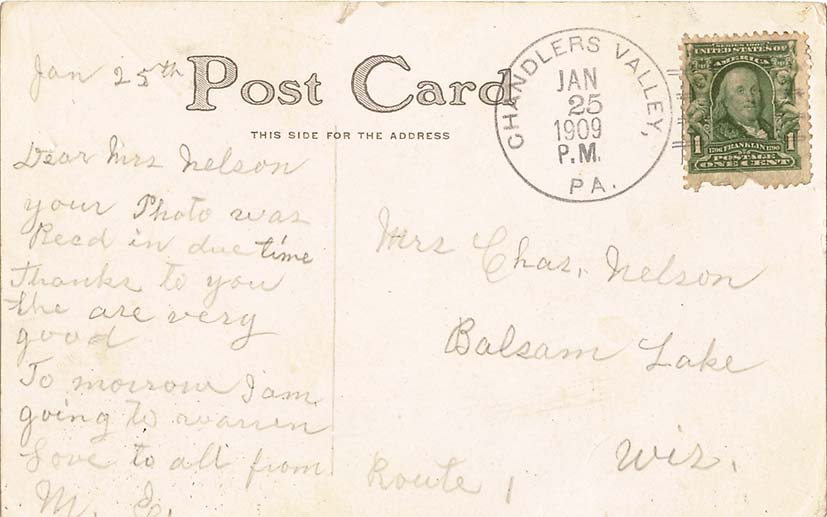 Jan 25th
Post Card
THIS SIDE FOR THE ADDRESS
CHANDLERS VALLEY,
JAN
25
1909
P.M.
PA.
SERIES 1902
UNITED STATES OF
AMERICA
1 1706 FRANKLIN 1790 1
POSTAGE
ONE CENT
Dear Mrs Nelson
your Photo was
Recd in due time
Thanks to you
the are very
good
To morrow I am
going to warren
Love to all from
M.
Mrs Chas. Nelson
Balsam Lake
Wis.
Route 1